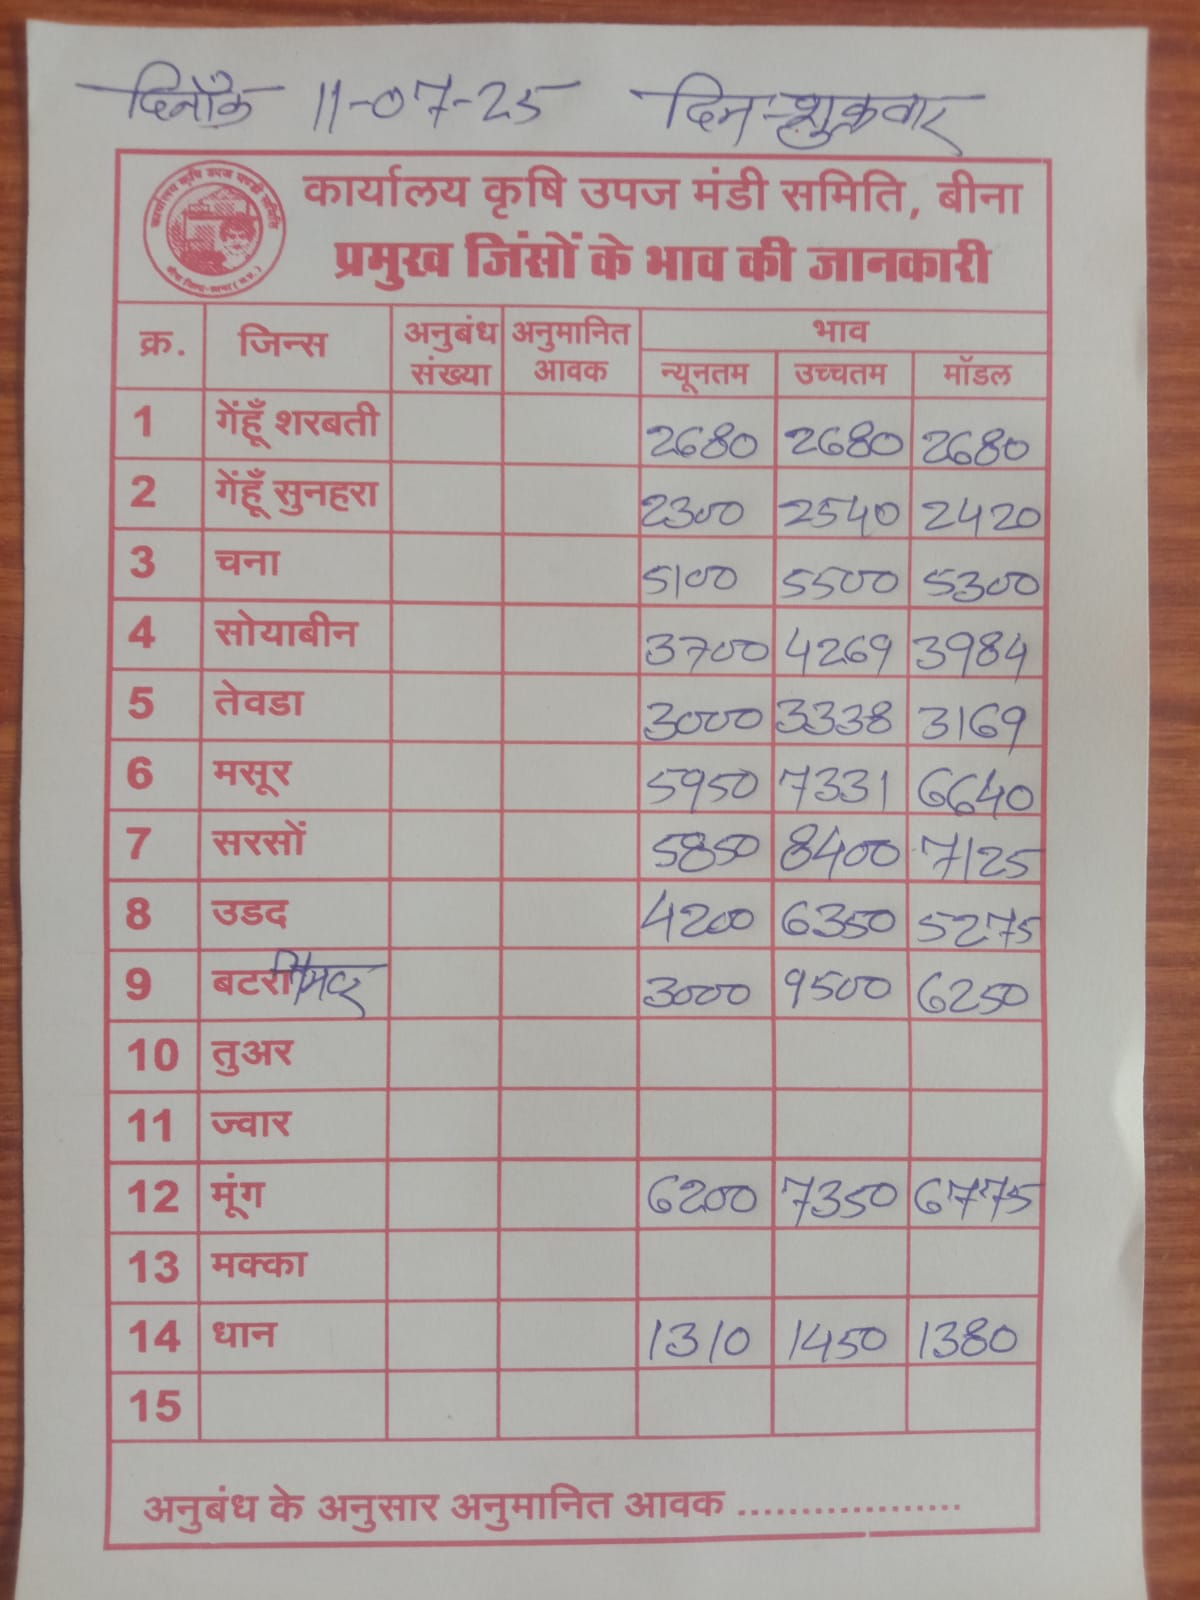 दिनाँक 11-07-25 दिन-शुक्रवार
कार्यालय कृषि उपज मंडी समिति, बीना
प्रमुख जिंसों के भाव की जानकारी
क्र. जिन्स अनुबंध संख्या अनुमानित आवक भाव
न्यूनतम उच्चतम मॉडल
1 गेंहूँ शरबती 2680 2680 2680
2 गेंहूँ सुनहरा 2300 2540 2420
3 चना 5100 5500 5300
4 सोयाबीन 3700 4269 3984
5 तेवडा 3000 3338 3169
6 मसूर 5950 7331 6640
7 सरसों 5850 8400 7125
8 उडद 4200 6350 5275
9 बटरी 3000 9500 6250
10 तुअर
11 ज्वार
12 मूंग 6200 7350 6775
13 मक्का
14 धान 1310 1450 1380
15
अनुबंध के अनुसार अनुमानित आवक ..................